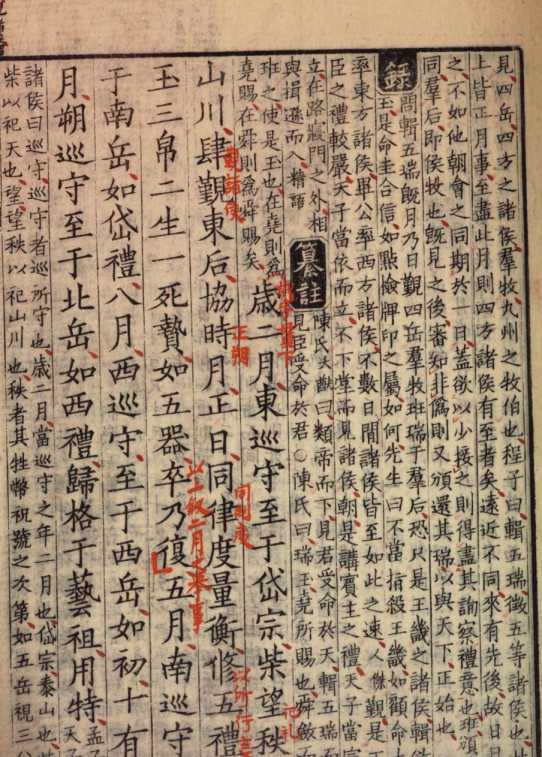 見四岳四方之諸侯羣牧九州之牧伯也程子曰輯五瑞徵五等諸侯也
上皆正月事至盡此月則四方諸侯有至者矣遠近不同來有先後故日日
之不如他朝會之同期於一日蓋欲以少接之則得盡其詢察禮意也班頒
同羣后即侯牧也旣見之後審知非僞則又頒還其瑞以與天下正始也
錄 問輯五瑞旣月乃日觀四岳羣牧班瑞于羣后恐只是王畿之諸侯輯
玉是命圭合信如點檢牌印之屬如何先生曰不當指殺王畿如顧命
率東方諸侯畢公率西方諸侯不數日間諸侯皆至如此之速 人傑覲是
臣之禮較嚴天子當依而立不下堂而見諸侯朝是講賓主之禮天子當
立在路寢門之外相
與揖遜而入 精語
纂註 陳氏大猷曰類帝而下見君受命於天輯五瑞
見臣受命於君○陳氏曰瑞玉堯所賜也舜斂而
班之使是玉也在堯則爲
堯賜在舜則爲舜賜矣
歲二月東巡守至于岱宗柴望秩
山川肆覲東后協時月正日同律度量衡脩五禮
玉三帛二生一死贄如五器卒乃復五月南巡守
于南岳如岱禮八月西巡守至于西岳如初十有
月朔巡守至于北岳如西禮歸格于藝祖用特
諸侯曰巡守巡守者巡所守也歲二月當巡守之年二月也岱宗泰山也
柴以祀天也望望秩以祀山川也秩者其牲幣祝號之次第如五岳視三
覲諸侯
正朔
同制度